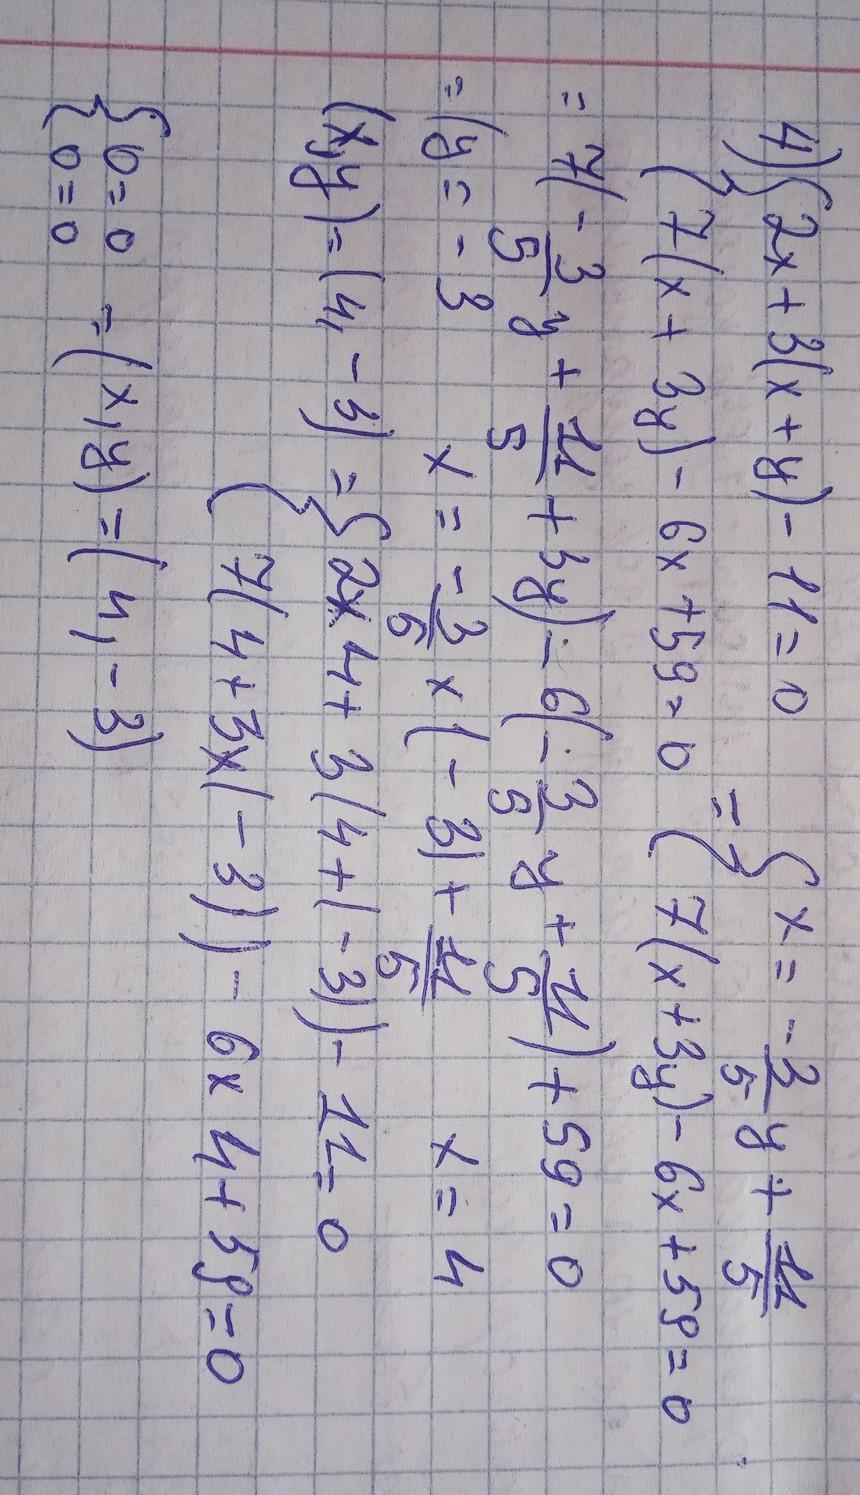 4) { 2x + 3(x + y) - 11 = 0 = { x = - 3/5 y + 11/5
{ 7(x + 3y) - 6x + 59 = 0 { 7(x + 3y) - 6x + 59 = 0
= 7(- 3/5 y + 11/5 + 3y) - 6(- 3/5 y + 11/5) + 59 = 0
= (y = - 3 x = - 3/5 x (- 3) + 11/5 x = 4
(x,y) = (4, - 3) = { 2x 4 + 3(4 + (- 3)) - 11 = 0
{ 7(4 + 3x(- 3)) - 6x 4 + 59 = 0
{ 0 = 0 = (x, y) = (4, - 3)
{ 0 = 0